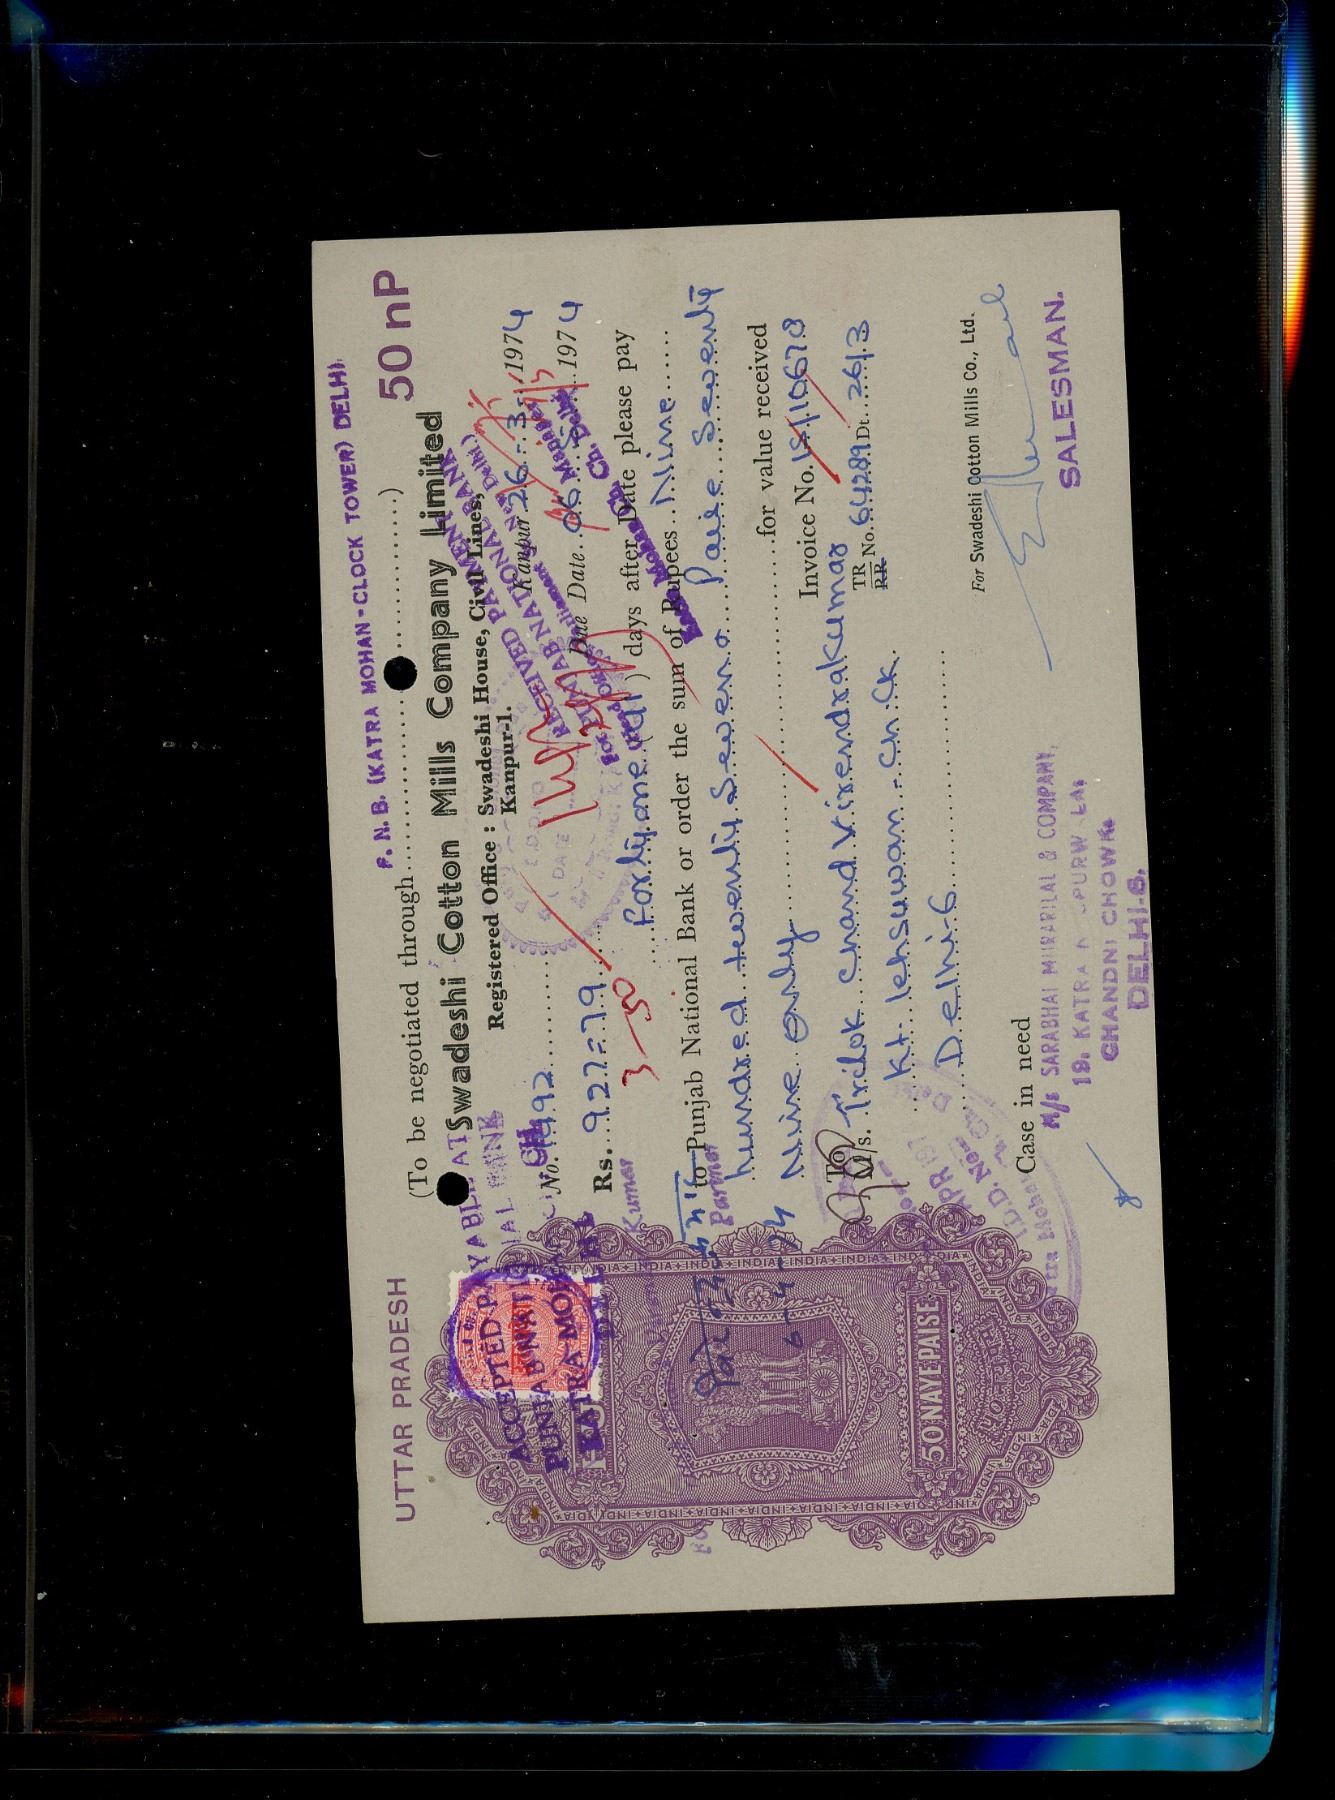 UTTAR PRADESH
50 nP
P. N. B. (KATRA MOHAN-CLOCK TOWER) DELHI
(To be negotiated through..............................)
Swadeshi Cotton Mills Company Limited
Registered Office : Swadeshi House, Civil Lines,
Kanpur-1.
Kanpur 26-3-1974
No. 1492
Due Date 06.5.1974
Rs. 927=79
3-50
fortyone (41) days after Date please pay
to Punjab National Bank or order the sum of Rupees Nine
hundred twenty Seven Paise Seventy
Nine only for value received
Invoice No. 151/10678
To
M/s. Trilok chand Virendrakumar
TR
RR No. 64289 Dt. 26/3
Kt. lehsuwan-ch.ck.
Delhi-6
For Swadeshi Cotton Mills Co., Ltd.
SALESMAN.
Case in need
M/s SARABHAI MURARILAL & COMPANY,
19, KATRA
CHANDNI CHOWK,
DELHI-6.
ACCEPTED PAYABLE AT
PUNJAB NATIONAL BANK
KATRA MOHAN
DELHI
RECEIVED PAYMENT
PUNJAB NATIONAL BANK
Manager
Kumar
Parmar
6-4-74
INDIA
50 NAYE PAISE
५० नये पैसे